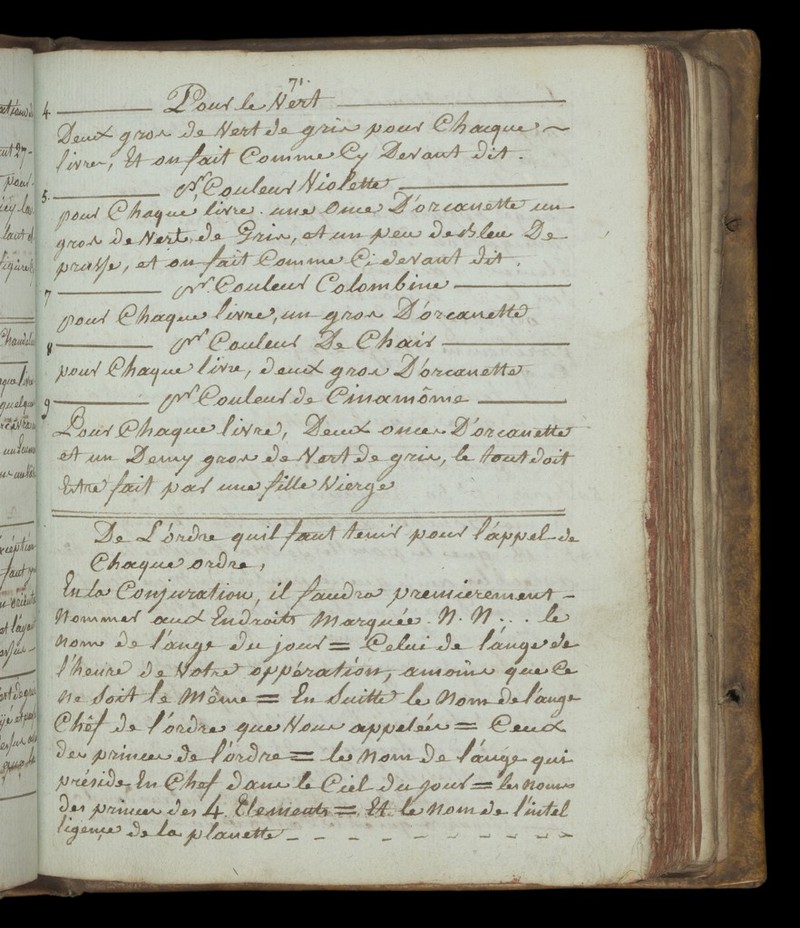 71.
4 Pour le Vert
Deux gros de Vert de gris pour Chaque
livre, Et on fait Comme Cy Devant dit.
5. pr. Couleur Violette
pour Chaque livre. une once D'orcanette un
gros de Vert de Gris, et un peu de Bleu De
prusse, et on fait Comme Ci devant dit.
7 pr. Couleur Colombine
pour Chaque livre, un gros D'orcanette
8 pr Couleur De Chair
pour Chaque livre, deux gros D'orcanette
9 pr Couleur de Cinamôme
Pour Chaque livre, Deux onces D'orcanette
et un Demy gros de Vert de gris, le tout doit
Estre fait par une fille Vierge
De L'órdre quil faut tenir pour l'áppel de
Chaque ordre,
En la Conjuration, il faudra premierement
Nommer aux Endroits Marquée. N. N... le
nom de l'ange du jour = Celui de l'ange de
l'heure de Votre oppération, amoins que Ce
ne soit le Même = En Suitte le Nom de l'ange
Chêf de l'ordre que Vous appelés = Ceux
des princes de l'órdre = le Nom de l'ange qui
préside En Chef dans le Ciel du jour = les Noms
des princes des 4. Elements = Et le Nom de l'intel
ligençe de la planette